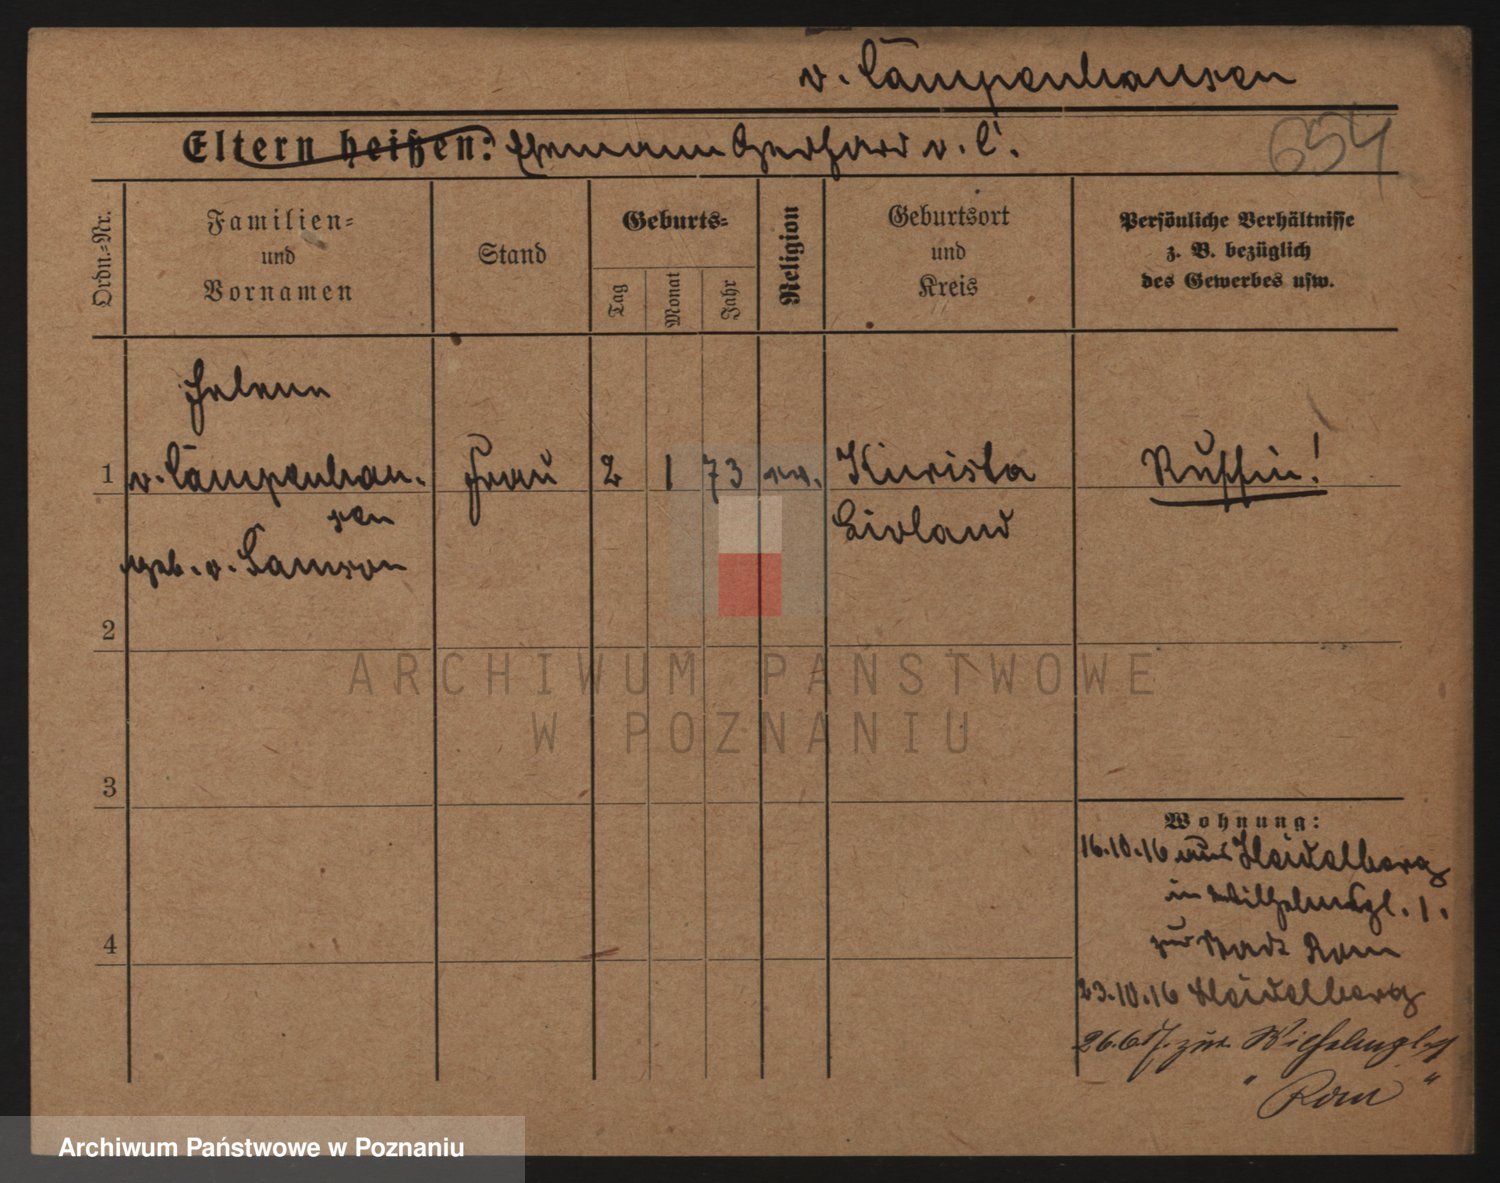 v. Campenhausen
Eltern heißen: Ehemann Gerhard v. C.
654
Ordn.-Nr.
Familien-
und
Vornamen
Stand
Geburts-
Tag
Monat
Jahr
Religion
Geburtsort
und
Kreis
Persönliche Verhältnisse
z. B. bezüglich
des Gewerbes usw.
Helene
1 v. Campenhau- Frau 2 1 73 ev. Kurista Russin!
sen
Livland
geb. v. Samson
2
3
4
Wohnung:
16.10.16 aus Heidelberg
in Wilhelmspl. 1.
zur Stadt Rom
23.10.16 Heidelberg
26.6.17. zur. Wilhelmspl. 1
" Rom "
ARCHIWUM PAŃSTWOWE
W POZNANIU
Archiwum Państwowe w Poznaniu